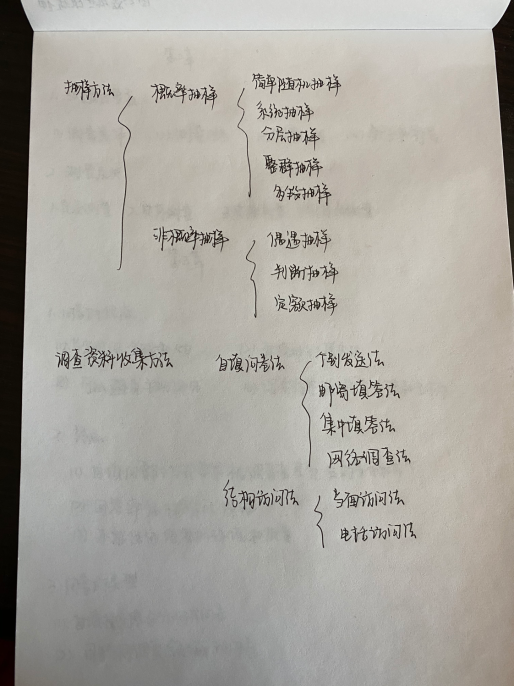 抽样方法 概率抽样 简单随机抽样
系统抽样
分层抽样
整群抽样
多段抽样
非概率抽样 偶遇抽样
判断抽样
定额抽样
调查资料收集方法 自填问卷法 个别发送法
邮寄填答法
集中填答法
网络调查法
结构访问法 当面访问法
电话访问法